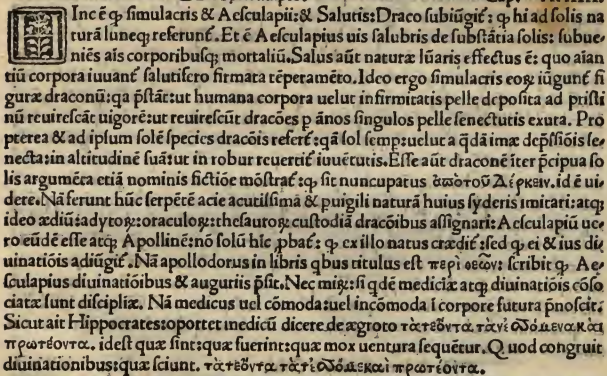 Hinc ē ꝙ simulacris & Aesculapii: & Salutis: Draco subiūgit᷑: ꝙ hi ad solis na
turā luneqꝫ referunt᷑. Et ē Aesculapius uis salubris de substātia solis: subue⸗
niēs ais corporibusqꝫ mortaliū. Salus aūt naturæ lūaris effectus ē: quo aian
tiū corpora iuuant᷑ salutifero firmata tēperamēto. Ideo ergo simulacris eoꝝ iūgunt᷑ fi
guræ draconū: qa p̄stāt: ut humana corpora uelut infirmitatis pelle deposita ad pristi
nū reuirescāt uigorē: ut reuirescūt dracōes p ānos singulos pelle senectutis exuta. Pro
pterea & ad ipsum solē species dracōis refert᷑: qā sol semp: uelut a qdā imæ dep̄ssiōis se⸗
necta: in altitudinē suā: ut in robur reuertit᷑ iuuētutis. Esse aūt draconē īter p̄cipua so
lis argumēta etiā nominis fictiōe mōstrat᷑: ꝙ sit nuncupatus ἀπὸτοῦ Δέρκειν. id ē ui⸗
dere. Nā ferunt hūc serpētē acie acutissima & puigili naturā huius syderis imitari: atqꝫ
ideo ædiū: adytoꝝ: oraculoꝝ: thesauroꝝ custodiā dracōibus assignari: Aesculapiū ue⸗
ro eūdē esse atqꝫ Apollinē: nō solū hīc ꝓbat᷑: ꝙ ex illo natus crædit᷑: sed ꝙ ei & ius di⸗
uinatiōis adiūgit᷑. Nā apollodorus in libris qbus titulus est περὶ θεῶν: scribit ꝙ Ae⸗
sculapius diuinatiōibus & auguriis p̄sit. Nec miꝝ: si qdē mediciæ atqꝫ diuinatiōis cōso
ciatæ sunt disciplīæ. Nā medicus uel cōmoda: uel incōmoda ī corpore futura p̄noscit.
Sicut ait Hippocrates: oportet medicū dicere de ægroto τὰπεόντα τὰπροόμενακαὶ
πρωτέοντα. idest quæ sint: quæ fuerint: quæ mox uentura sequētur. Quod congruit
diuinationibus: quæ sciunt. τὰτεόντα τὰπροόμενακαὶ πρωτέοντα.